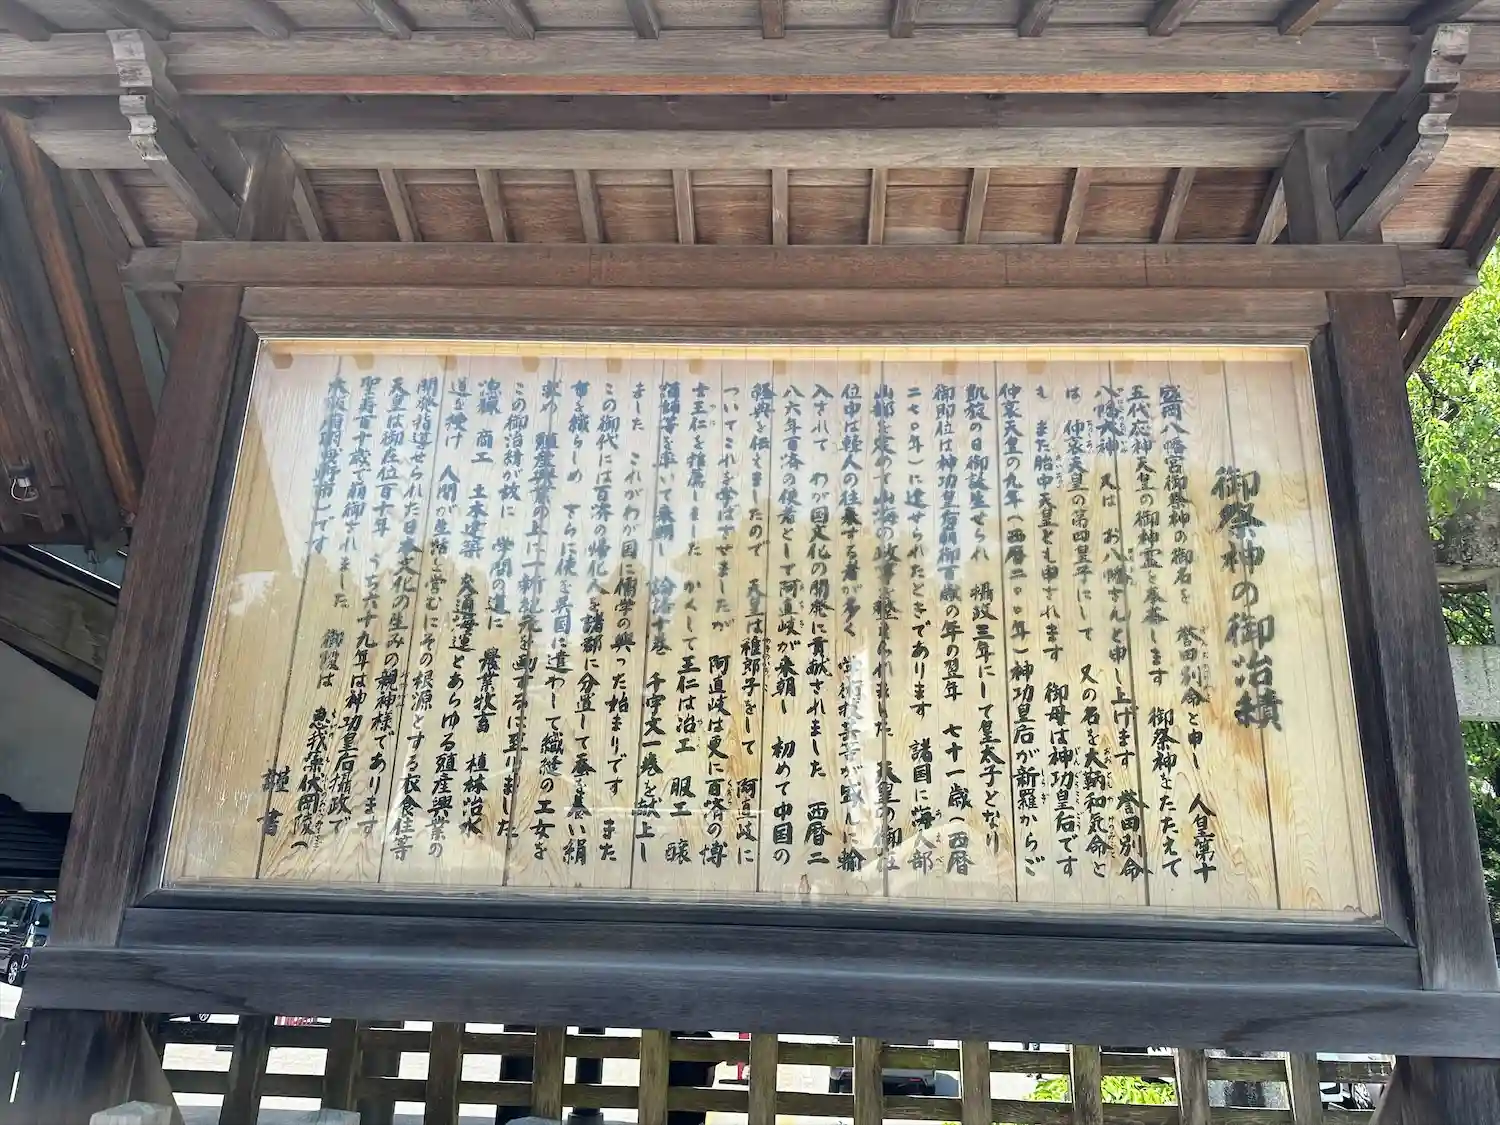 御祭神の御治績
盛岡八幡宮御祭神の御名を 誉田別命と申し 人皇第十
五代応神天皇の御神霊を奉斎します 御祭神をたたえて
八幡大神 又は お八幡さんと申し上げます 誉田別命
は 仲哀天皇の第四皇子にして 又の名を大鞆和気命と
も また胎中天皇とも申されます 御母は神功皇后です
仲哀天皇の九年(西暦二〇〇年)神功皇后が新羅からご
凱旋の日御誕生せられ 摂政三年にして皇太子となり
御即位は神功皇后崩御百歳の年の翌年 七十一歳(西暦
二七〇年)に達せられたときであります 諸国に海人部
山部を定めて山海の政事を整えられました 天皇の御在
位中は韓人の往来する者が多く 学術技芸等が盛んに輸
入されて わが国文化の開発に貢献されました 西暦二
八六年百済の使者として阿直岐が来朝し 初めて中国の
経典を伝えましたので 天皇は稚郎子をして 阿直岐に
ついてこれを学ばさせましたが 阿直岐は更に百済の博
士王仁を推薦しました かくして王仁は冶工 服工 醸
酒師等を率いて来朝し 論語十巻 千字文一巻を献上し
ました これがわが国に儒学の興った始まりです また
この御代には百済の帰化人を諸郡に分遣して蚕を養い絹
布を織らしめ さらに使を呉国に遣わして織縫の工女を
求め 殖産興業の上に一新紀元を画するに至りました
この御治績が故に 学問の道に 農業牧畜 植林治水
漁猟 商工 土木建築 交通海運とあらゆる殖産興業の
道を授け 人間が生活を営むにその根源とする衣食住等
開発指道せられた日本文化の生みの親神様であります
天皇は御在位百十年 うち六十九年は神功皇后摂政で
聖寿百十歳で崩御されました 御陵は 恵我藻伏岡陵(
大阪府羽曳野市)です
謹書